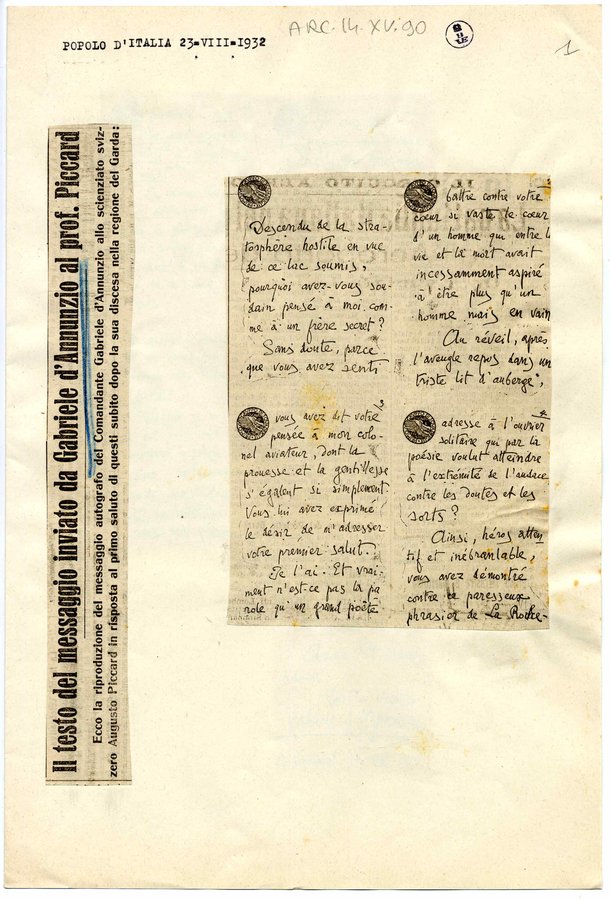 POPOLO D'ITALIA 23=VIII=1932
ARC.14.XV.90
1
Il testo del messaggio inviato da Gabriele d'Annunzio al prof. Piccard
Ecco la riproduzione del messaggio autografo del Comandante Gabriele d'Annunzio allo scienziato sviz-
zero Augusto Piccard in risposta al primo saluto di questi subito dopo la sua discesa nella regione del Garda:
Descendu de la stra-
tosphère hostile en vue
de ce lac soumis,
pourquoi avez-vous sou-
dain pensé à moi com-
me à un frère secret?
Sans doute, parce
que vous avez senti
battre contre votre
cœur si vaste le cœur
d'un homme qui entre la
vie et la mort avait
incessamment aspiré
à être plus qu'un
homme mais en vain
Au réveil, après
l'aveugle repos dans un
triste lit d'auberge,
3
vous avez dit votre
pensée à mon colo-
nel aviateur, dont la
prouesse et la gentillesse
s'égalent si simplement.
Vous lui avez exprimé
le désir de m'adresser
votre premier salut.
Je l'ai. Et vrai-
ment n'est-ce pas la pa
role qu'un grand poète
4
adresse à l'ouvrier
solitaire qui par la
poésie voulut atteindre
à l'extrémité de l'audace
contre les doutes et les
sorts?
Ainsi, héros atten
tif et inébranlable,
vous avez démontré
contre ce paresseux
phrasier de La Roche-